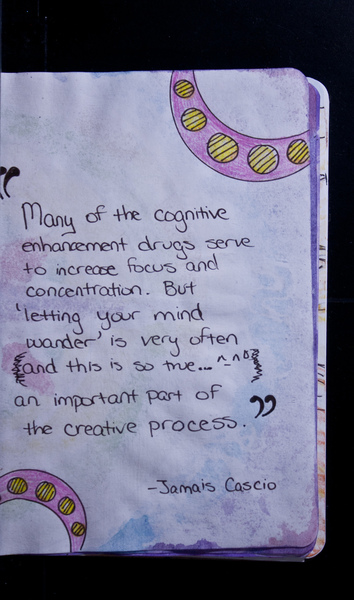 "Many of the cognitive
enhancement drugs serve
to increase focus and
concentration. But
'letting your mind
wander' is very often
(and this is so true... ^_^)
an important part of
the creative process."
-Jamais Cascio